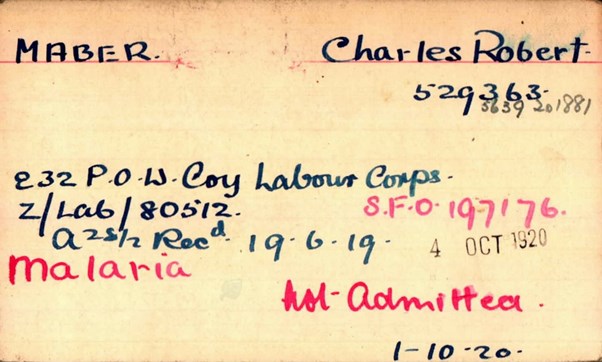 MABER. Charles Robert
529363.
5639 201881
232 P.O.W. Coy Labour Corps.
Z/Lab/80512. S.F.O. 197176.
Recd. 19.6.19. 4 OCT 1920
Malaria
Not Admitted.
1-10-20.